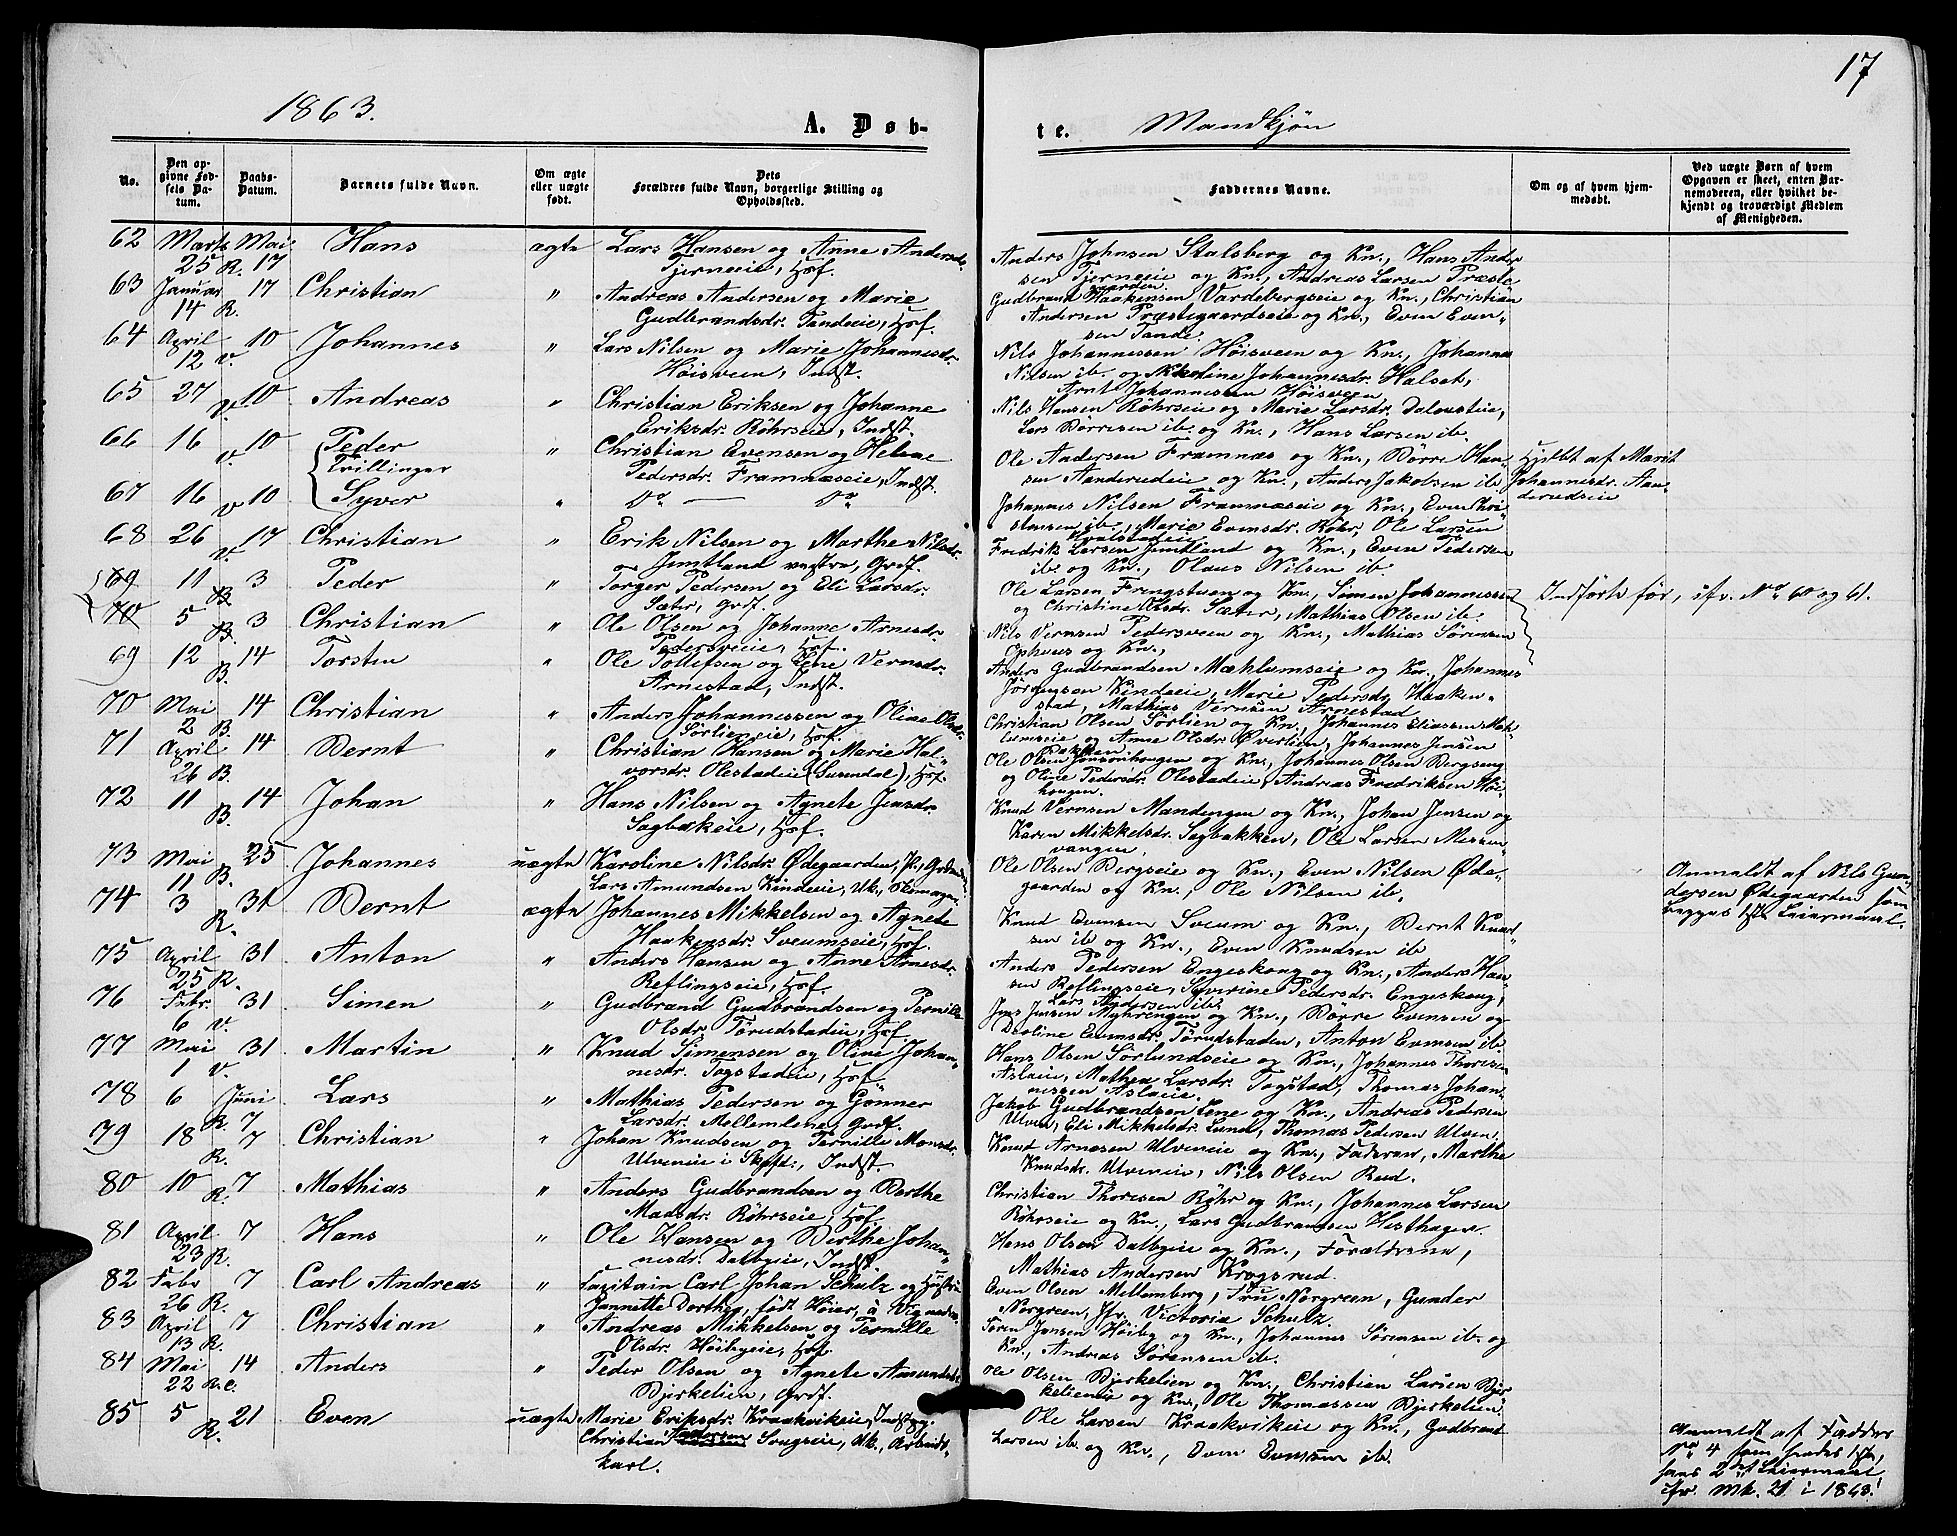 17
1863.
A. Døb-
te.
Mandkjøn
No.
Den op-
givne Fød-
sels Da-
tum.
Daabs-
Datum.
Barnets fulde Navn.
Om ægte
eller uægte
født.
Dets
Forældres fulde Navn, borgerlige Stilling og
Opholdssted.
Faddernes Navne.
Om og af hvem hjem-
medøbt.
Ved uægte Børn af hvem
Opgaven er skeet, enten Bar-
nemoderen, eller hvilket be-
kjendt og troværdigt Medlem
af Menigheden.
62 Marts Mai Hans ægte Lars Hansen og Anne Andersdr.
25 R. 17 Tjerneeie, Hsf.
Anders Johnsen Stalsberg og Kn., Hans Ander
sen Tjerneeie og Kn., Andreas Larsen Præste
gaarden.
63 Januar 17 Christian " Andreas Andersen og Marie
14 R. Gudbrandsdr. Tandeeie, Hsf.
Gudbrand Haakensen Vardebergseie og Kn., Christian
Andersen Præstegaardseie og Kn., Even Even-
sen Tande.
64 April 10 Johannes " Lars Nilsen og Marie Johannesdr.
12 v. Høisveen, Indst.
Nils Johannessen Høisveen og Kn., Johannes
Nilsen ib. og Johannesdr. Halset,
Arnt Johannessen Høisveen
65 27 v. 10 Andreas " Christian Eriksen og Johanne
Eriksdr. Röhrseie, Indst.
Nils Hansen Röhrseie og Marie Larsdr.
Lars Börresen ib. og Kn., Hans Larsen ib.
66 16 v. 10 Peder " Christian Evensen og Helene
Tvillinger Pedersdr. Framnæseie, Indst.
Ole Andersen Framnæs og Kn., Börre Han-
sen Aanderudeie og Kn., Anders Jakobsen ib.
Hjdbt af Marit
Johannesdr. Aan-
derudseie
67 16 v 10 Syver " Do — Do
Johannes Nilsen Framnæseie og Kn., Even Chri-
stiansen ib., Marie Evensdr. Röhr, Ole Larsen
Kvalstadeie
68 26 v. 17 Christian " Erik Nilsen og Marthe Nilsdr.
Jemtland vestre, Grdf.
Fredrik Larsen Jemtland og Kn., Even Pedersen
ib. og Kn., Olaus Nilsen ib.
69 11 B 3 Peder " Torger Pedersen og Eli Larsdr.
Sæter, Grdf.
Ole Larsen Fringstuen og Kn., Simen Johannessen
og Christine Olsdr. Sæter, Mathias Olsen ib.
Indförte för, cfr. No 60 og 61.
70 5 B. 3 Christian " Ole Olsen og Johanne Arnesdr.
Pedersveeie, Hsf.
Nils Vernsen Pedersveen og Kn., Mathias Sörensen
Ophuus og Kn.,
69 12 B. 14 Torsten " Ole Tollefsen og Lene Vernsdr.
Arnestad, Indst.
Anders Gudbrandsen Mæhlumseie og Kn., Johannes
Jörgensen Kindeeie, Marie Pedersdr. Haaken-
stad, Mathias Vernsen Arnestad
70 Mai 14 Christian " Anders Johannessen og Oline Olsdr.
2 B. Sörlieneie, Hsf.
Christian Olsen Sörlien og Kn., Johannes Eliassen Mæh-
lumseie og Anne Olsdr. Øverlien, Johannes Jensen
Bakken.
71 April 14 Bernt " Christian Hansen og Marie Hal-
26 B. vorsdr. Olestadeie (Surendal), Hsf.
Ole Olsen Jonsonhougen og Kn., Johannes Olsen Bergseng
og Oline Pedersdr. Olestadeie, Andreas Fredriksen Høi-
hougen.
72 11 B. 14 Johan " Hans Nilsen og Agnete Jensdr.
Sagbækeie, Hsf.
Knud Vernsen Mandengen og Kn., Johan Jensen og
Karen Mikkelsdr. Sagbakken, Ole Larsen Messen-
vangen
73 Mai 25 Johannes uægte Karoline Nilsdr. Ødegaarden, P.,
11 B. Lars Amundsen Kindeeie, Uk., Skomager
Ole Olsen Bergseie og Kn., Even Nilsen Øde-
gaarden og Kn., Ole Nilsen ib.
Anmeldt af Nils Gun-
dersen Ødegaarden som
begges 1ste Leiermaal.
74 3 R. 31 Bernt ægte Johannes Mikkelsen og Agnete
Haakensdr. Sveumseie, Hsf.
Knud Evensen Sveum og Kn., Bernt Knud-
sen ib og Kn., Even Knudsen ib
75 April 31 Anton " Anders Hansen og Anne Arnesdr.
25 R. Reflingseie, Hsf.
Anders Pedersen Engeskoug og Kn., Anders Han-
sen Reflingseie, Syverine Pedersdr. Engeskoug,
Lars Andersen ib.
76 Febr. 31 Simen " Gudbrand Gudbrandsen og Pernille
6 v. Olsdr. Törudstadeie, Hsf.
Jens Jensen Myhrengen og Kn., Börre Evensen og
Evensdr. Törudstaden, Anton Evensen ib
77 Mai 31 Martin " Knud Simensen og Oline Johan-
1 v. nesdr. Togstadeie, Hsf.
Hans Olsen Sörlundseie og Kn., Johannes Thoresen
Aslaeie, Mathea Larsdr. Togstad, Thomas Johan-
nessen Aslaeie.
78 6 Juni Lars " Mathias Pedersen og Gönner
R. 7 Larsdr. Mellemlene, Grdf.
Jakob Gudbrandsen Lene og Kn., Andreas Pedersen
Ulven, Eli Mikkelsdr. Lund, Thomas Pedersen Ulven.
79 18 R. 7 Christian " Johan Knudsen og Pernille Monsdr.
Ulveneie i Skpfd., Indst.
Knud Arnesen Ulveneie og Kn., Faderen, Marthe
Knudsdr. Ulveneie, Nils Olsen Rud.
80 10 R. 7 Mathias " Anders Gudbrandsen og Berthe
Madsdr. Röhrseie, Hsf.
Christian Thoresen Röhr og Kn., Johannes Larsen
Röhrseie og Kn., Lars Gudbrandsen Hesthagen.
81 April 7 Hans " Ole Hansen og Berthe Johan-
23 R. nesdr. Dalbyeie, Indst.
Hans Olsen Dalbyeie og Kn., Forældrene,
Mathias Andersen Krogsrud.
82 Febr 7 Carl Andreas " Capitain Carl Johan Schulz og Hustru
26 R. Jannette Dorthea, født Høier, à
Even Olsen Mellemberg, Fru Norgreen, Gunder
Norgreen, Jfr. Victoria Schulz.
83 April 7 Christian " Andreas Mikkelsen og Pernille
13 R. Olsdr. Höibyeie, Hsf.
Sören Jensen Höiby og Kn., Johannes Sörensen ib. og
Kn., Andreas Sörensen ib.
84 Mai 14 Anders " Peder Olsen og Agnete Amundsdr.
22 R.C. Bjerkelien, Grdf.
Ole Olsen Bjerkelien og Kn., Christian Larsen Bjer-
kelieneie og Kn., Ole Thomassen Bjerkelien
85 5 R. 21 Even uægte Marie Eriksdr. Kraakvikeie, Indst pg.
Christian Andersen Sougseie, Uk., Arbeids-
karl.
Ole Larsen Kraakvikeie og Kn., Gudbrand
Larsen ib. og Kn., Even Evensen ib.
Anmeldt af Fadder
No 4 som hendes 1ste,
hans 2det Leiermaal
cfr. Mk. 21 i 1863.